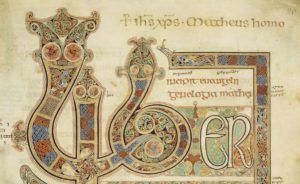 + ihs xps. Matheus homo
incipit euangelii
genelogia mathei
LIbER